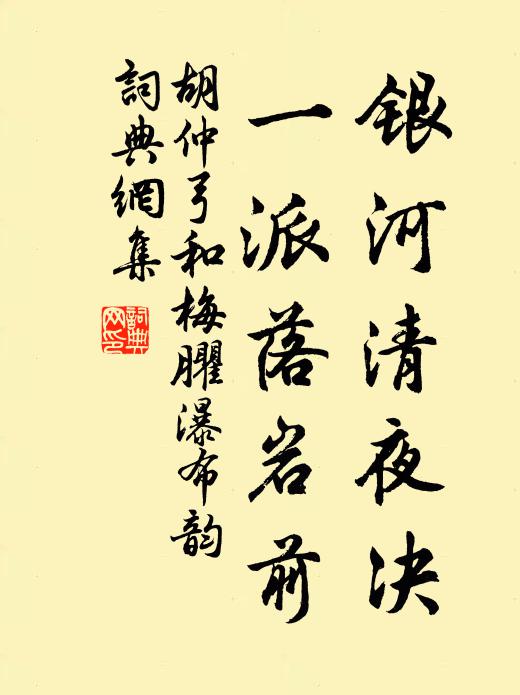 银河清夜决
一派落岩前
胡仲弓和梅臞瀑布韵
詞典網集
詞典网印